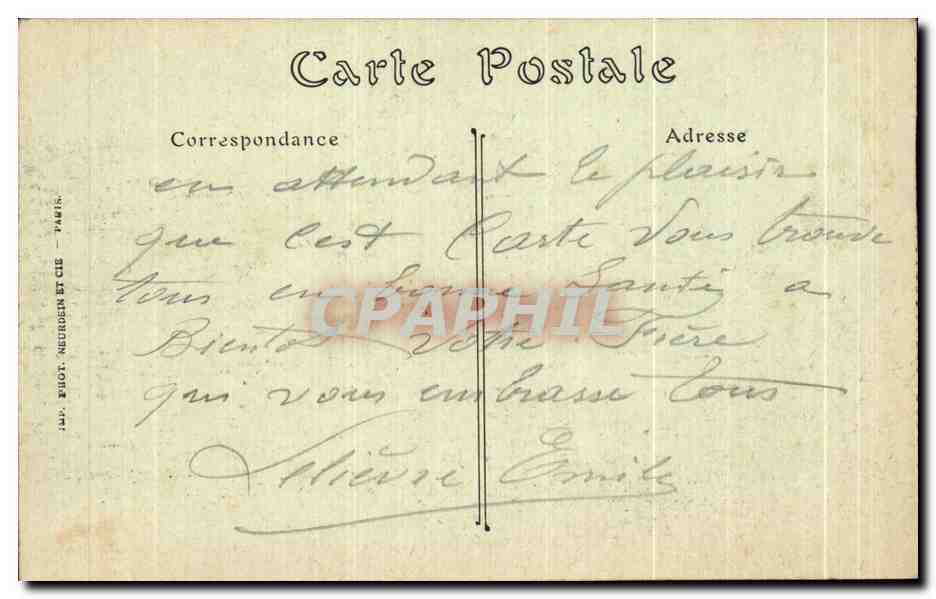 Carte Postale
Correspondance
Adresse
en attendant le plaisir
que c'est Carte vous trouve
tous en bonne Santé a
Bientot votre Frère
qui vous embrasse tous
Lelièvre Emile
IMP. PHOT. NEURDEIN ET CIE — PARIS.
CPAPHIL